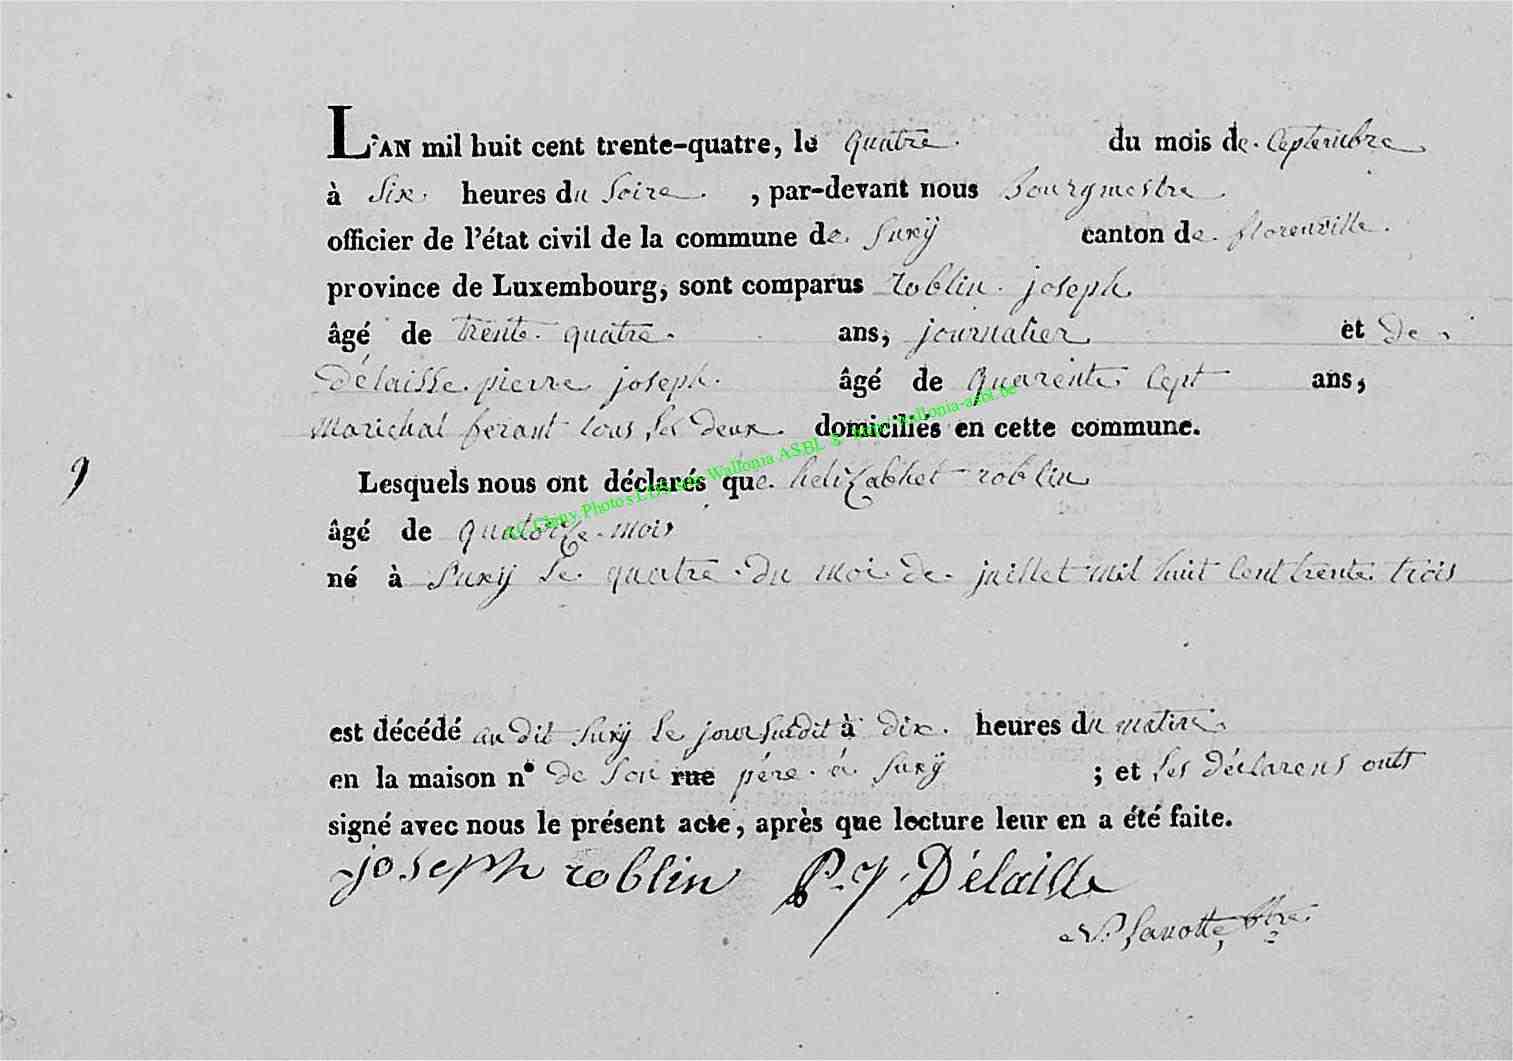 L'AN mil huit cent trente-quatre, le quatre du mois de Ceptembre
à Six heures du Soire , par-devant nous Bourgmestre
officier de l'état civil de la commune de Suxÿ canton de florenville
province de Luxembourg, sont comparus roblin joseph
âgé de trente quatre ans, journalier et de
Délaisse pierre joseph âgé de quarente Cept ans,
Marichal ferant tous les deux domiciliés en cette commune.
9
Lesquels nous ont déclarés que helizabhet roblin
âgé de quatorze mois
né à Suxÿ le quatre du moi de juillet mil huit Cent trente trois
est décédé au dit Suxÿ le jour sudit à dix heures du matin
en la maison n° de Son rue père à Suxÿ ; et les déclarens onts
signé avec nous le présent acte, après que lecture leur en a été faite.
joseph roblin P. J. Délaisse